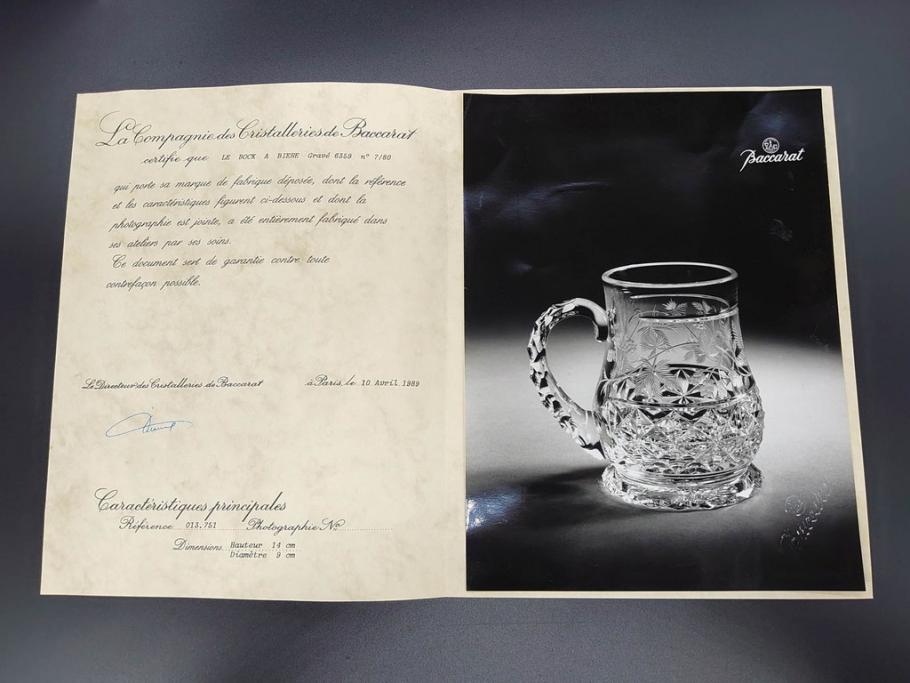 La Compagnie des Cristalleries de Baccarat
certifie que LE BOCK A BIERE Gravé 6359 n° 7/80
qui porte sa marque de fabrique déposée, dont la référence
et les caractéristiques figurent ci-dessous et dont la
photographie est jointe, a été entièrement fabriqué dans
ses ateliers par ses soins.
Ce document sert de garantie contre toute
contrefaçon possible.
Le Directeur des Cristalleries de Baccarat à Paris, le 10 Avril 1989
Caractéristiques principales
Référence 013.751 Photographie No
Dimensions Hauteur 14 cm
Diamètre 9 cm
Baccarat